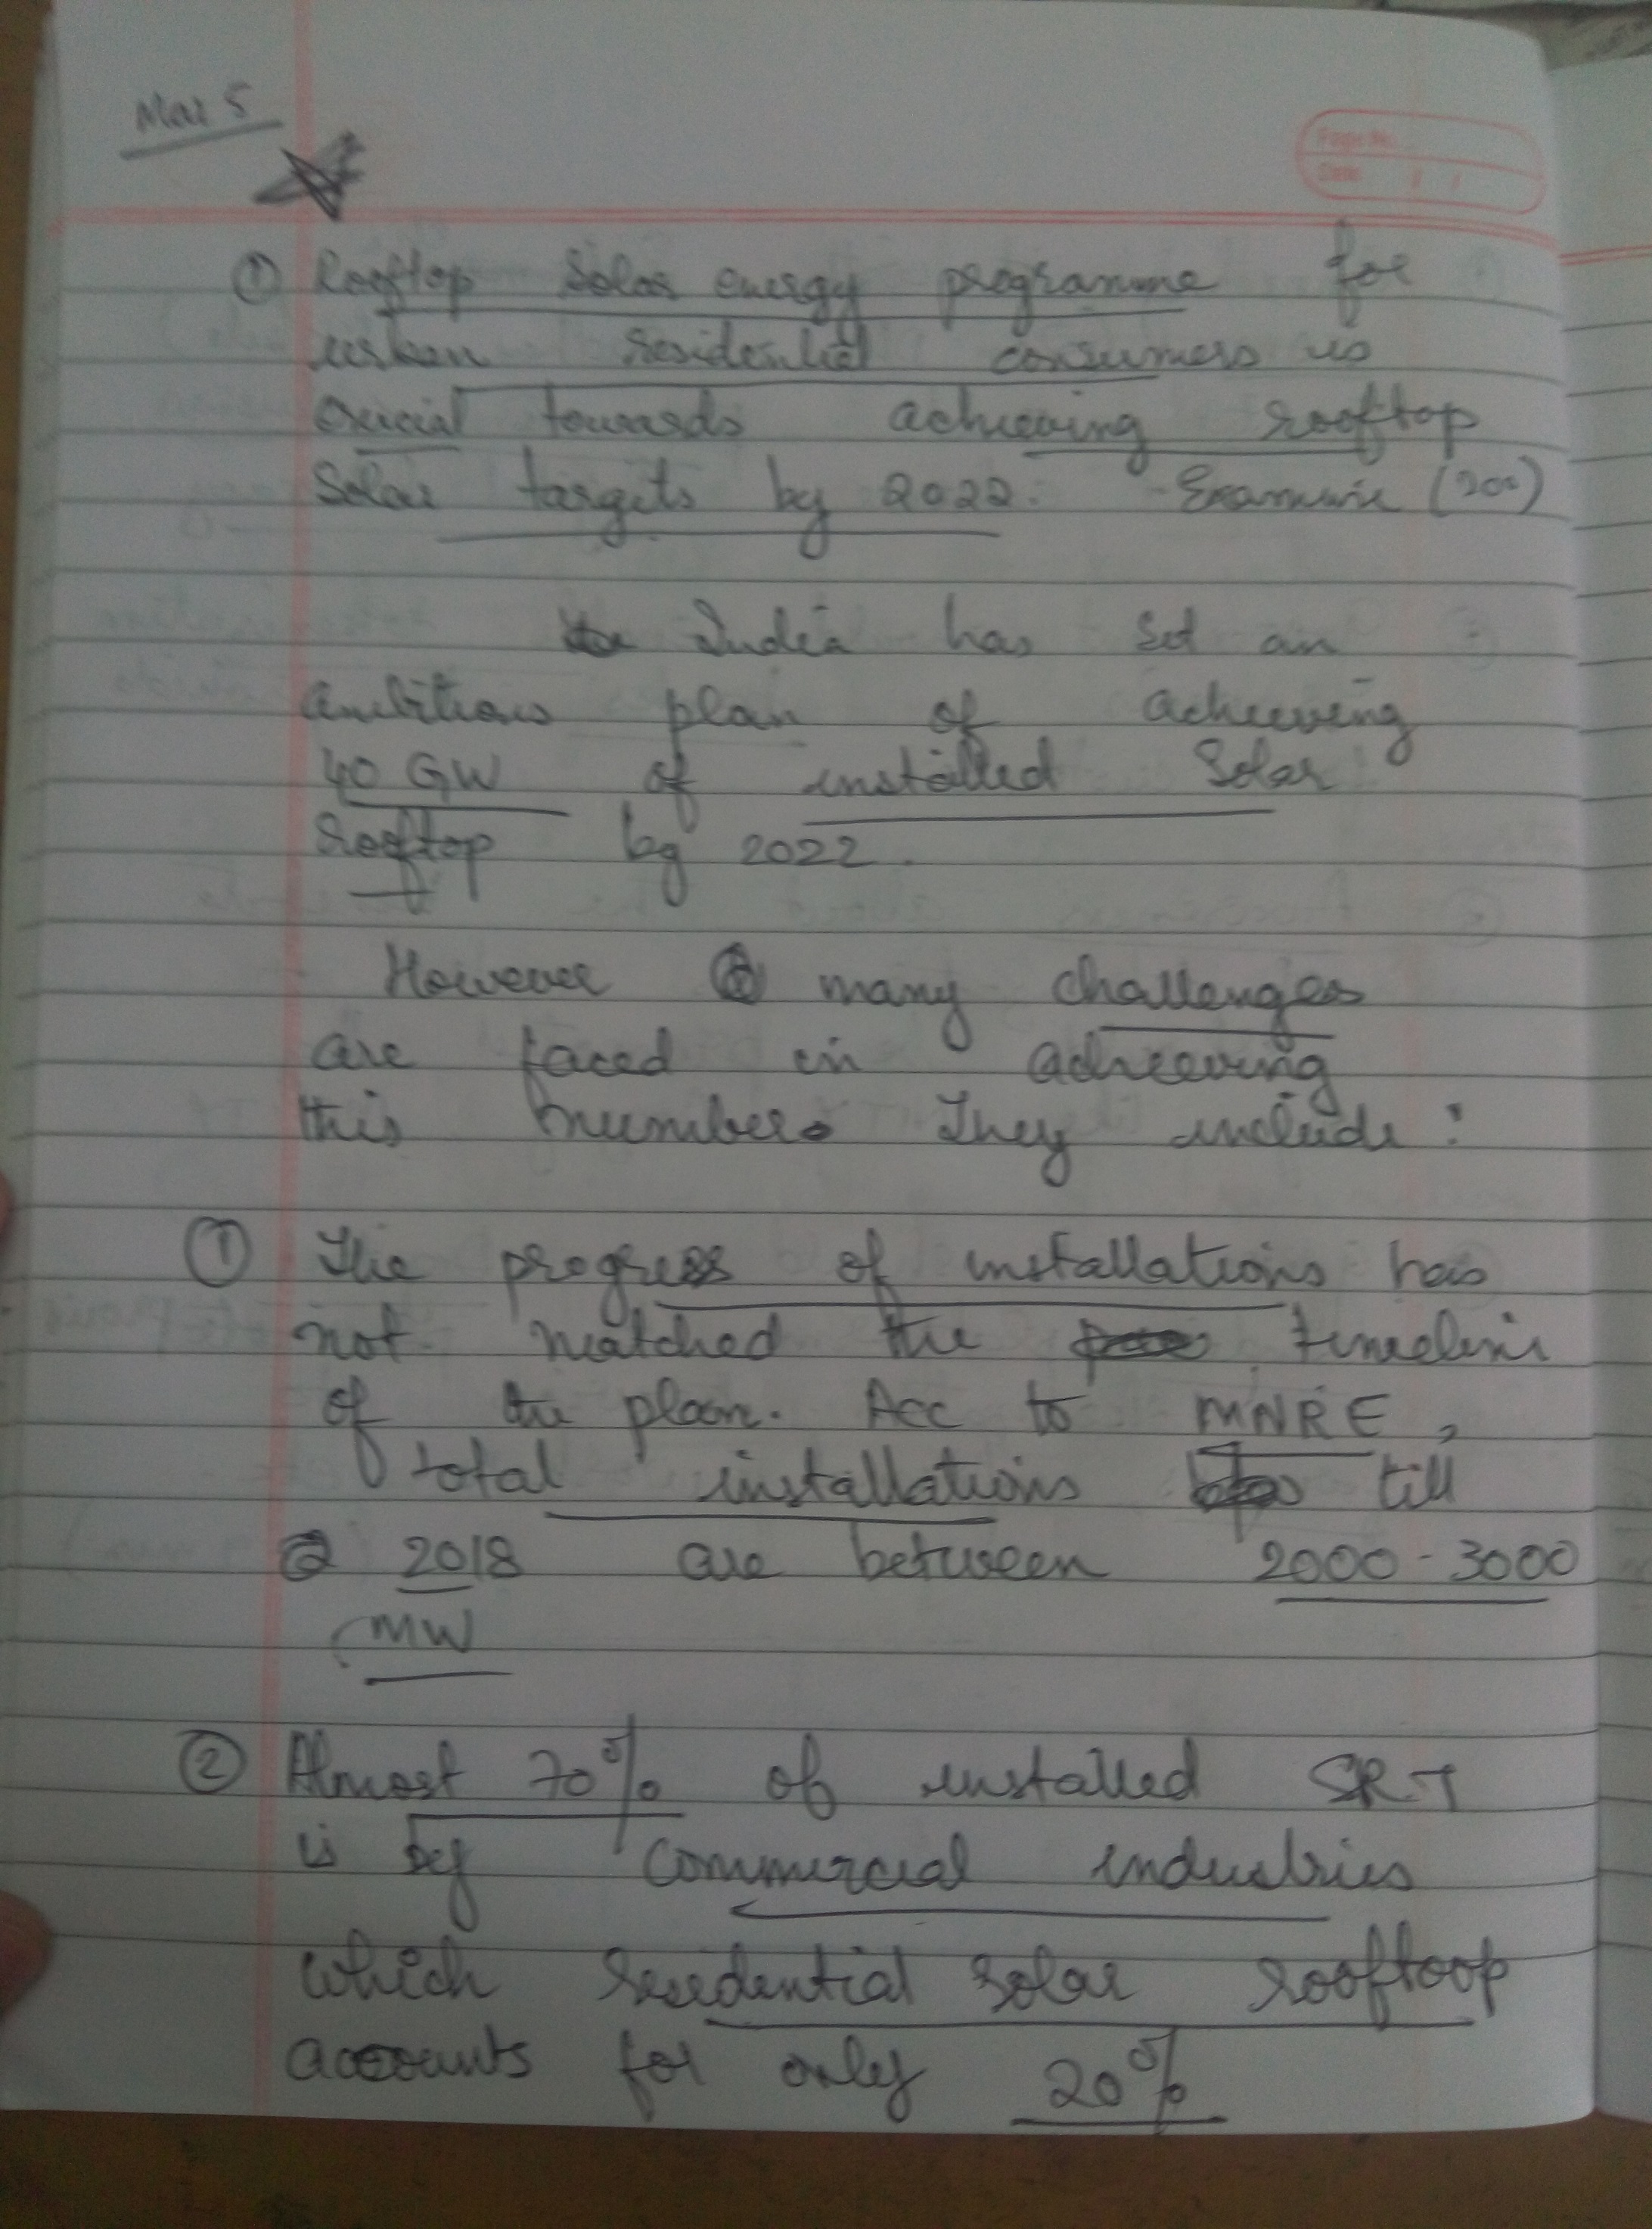 Mar 5
Page No.
Date / /
① Rooftop solar energy programme for
urban residential consumers is
crucial towards achieving rooftop
solar targets by 2022. - Examine (200)
India has set an
ambitious plan of achieving
40 GW of installed solar
rooftop by 2022.
However many challenges
are faced in achieving
this number. They include :
① The progress of installations has
not matched the timeline
of the plan. Acc to MNRE,
total installations till
2018 are between 2000 - 3000
MW
② Almost 70% of installed SRT
is by commercial industries
which residential solar rooftoop
accounts for only 20%